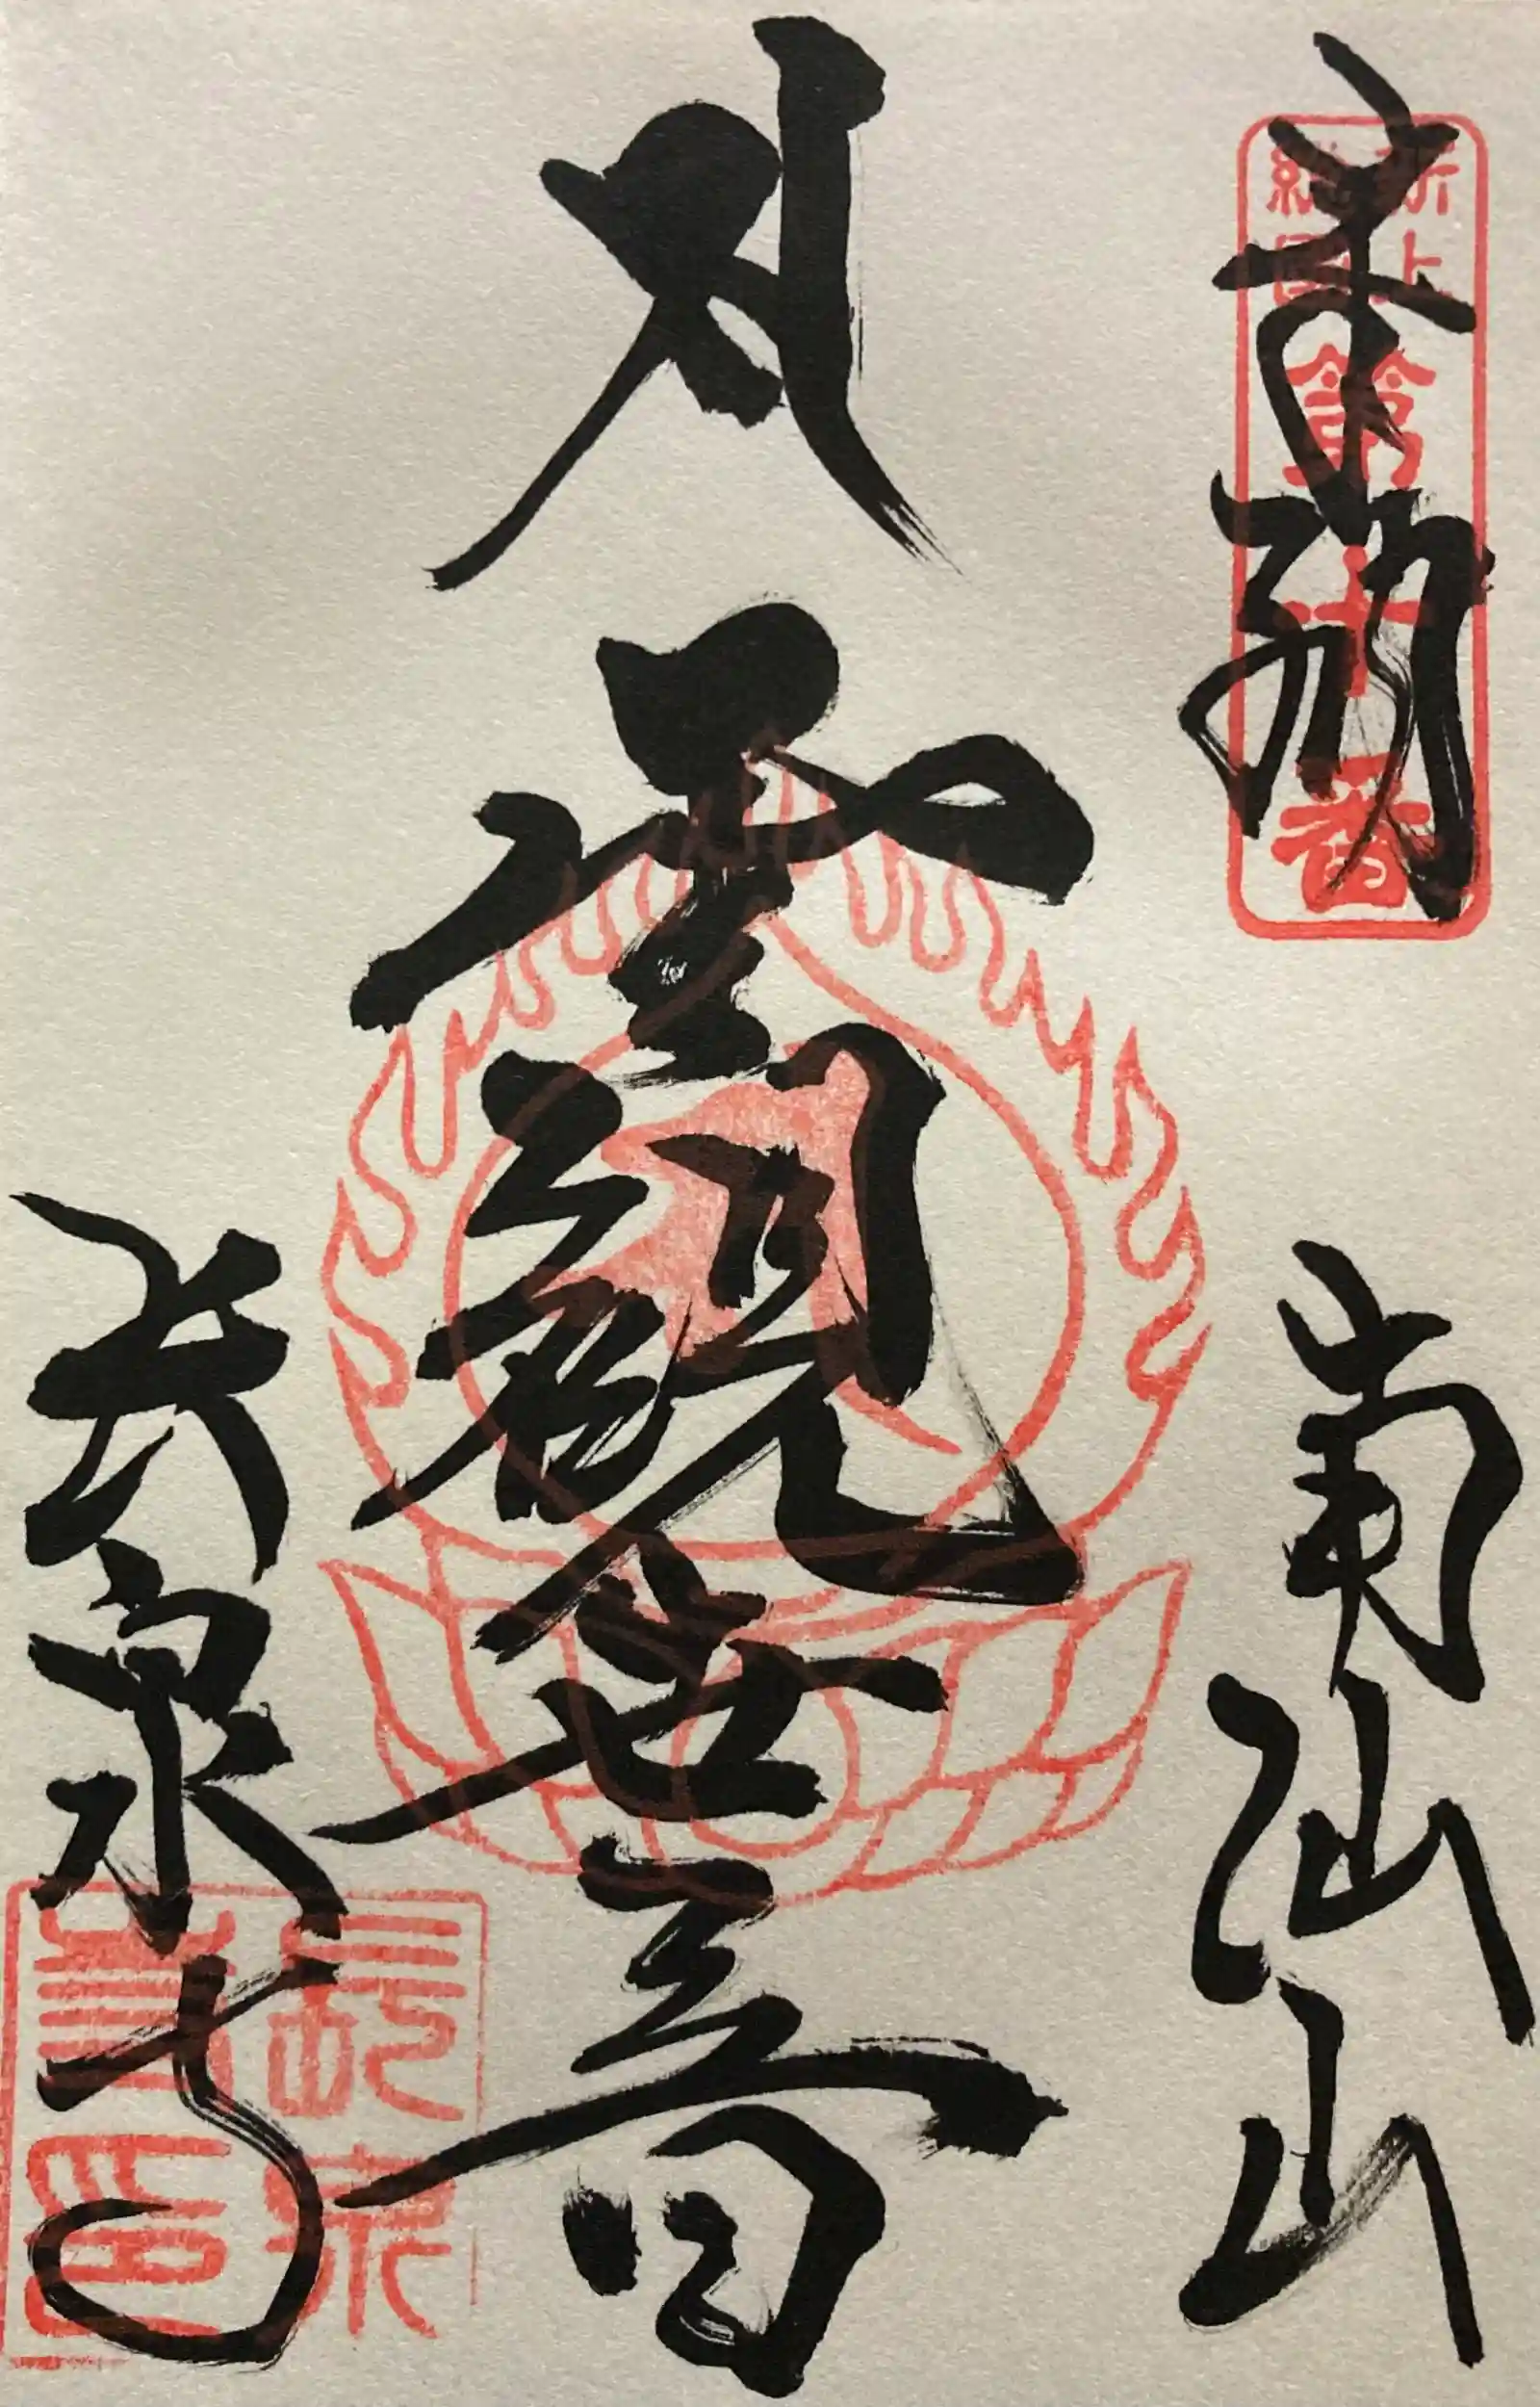 奉納
新上総国
第十一番
南仙山
サ
聖観世音
長泉寺
長泉寺印